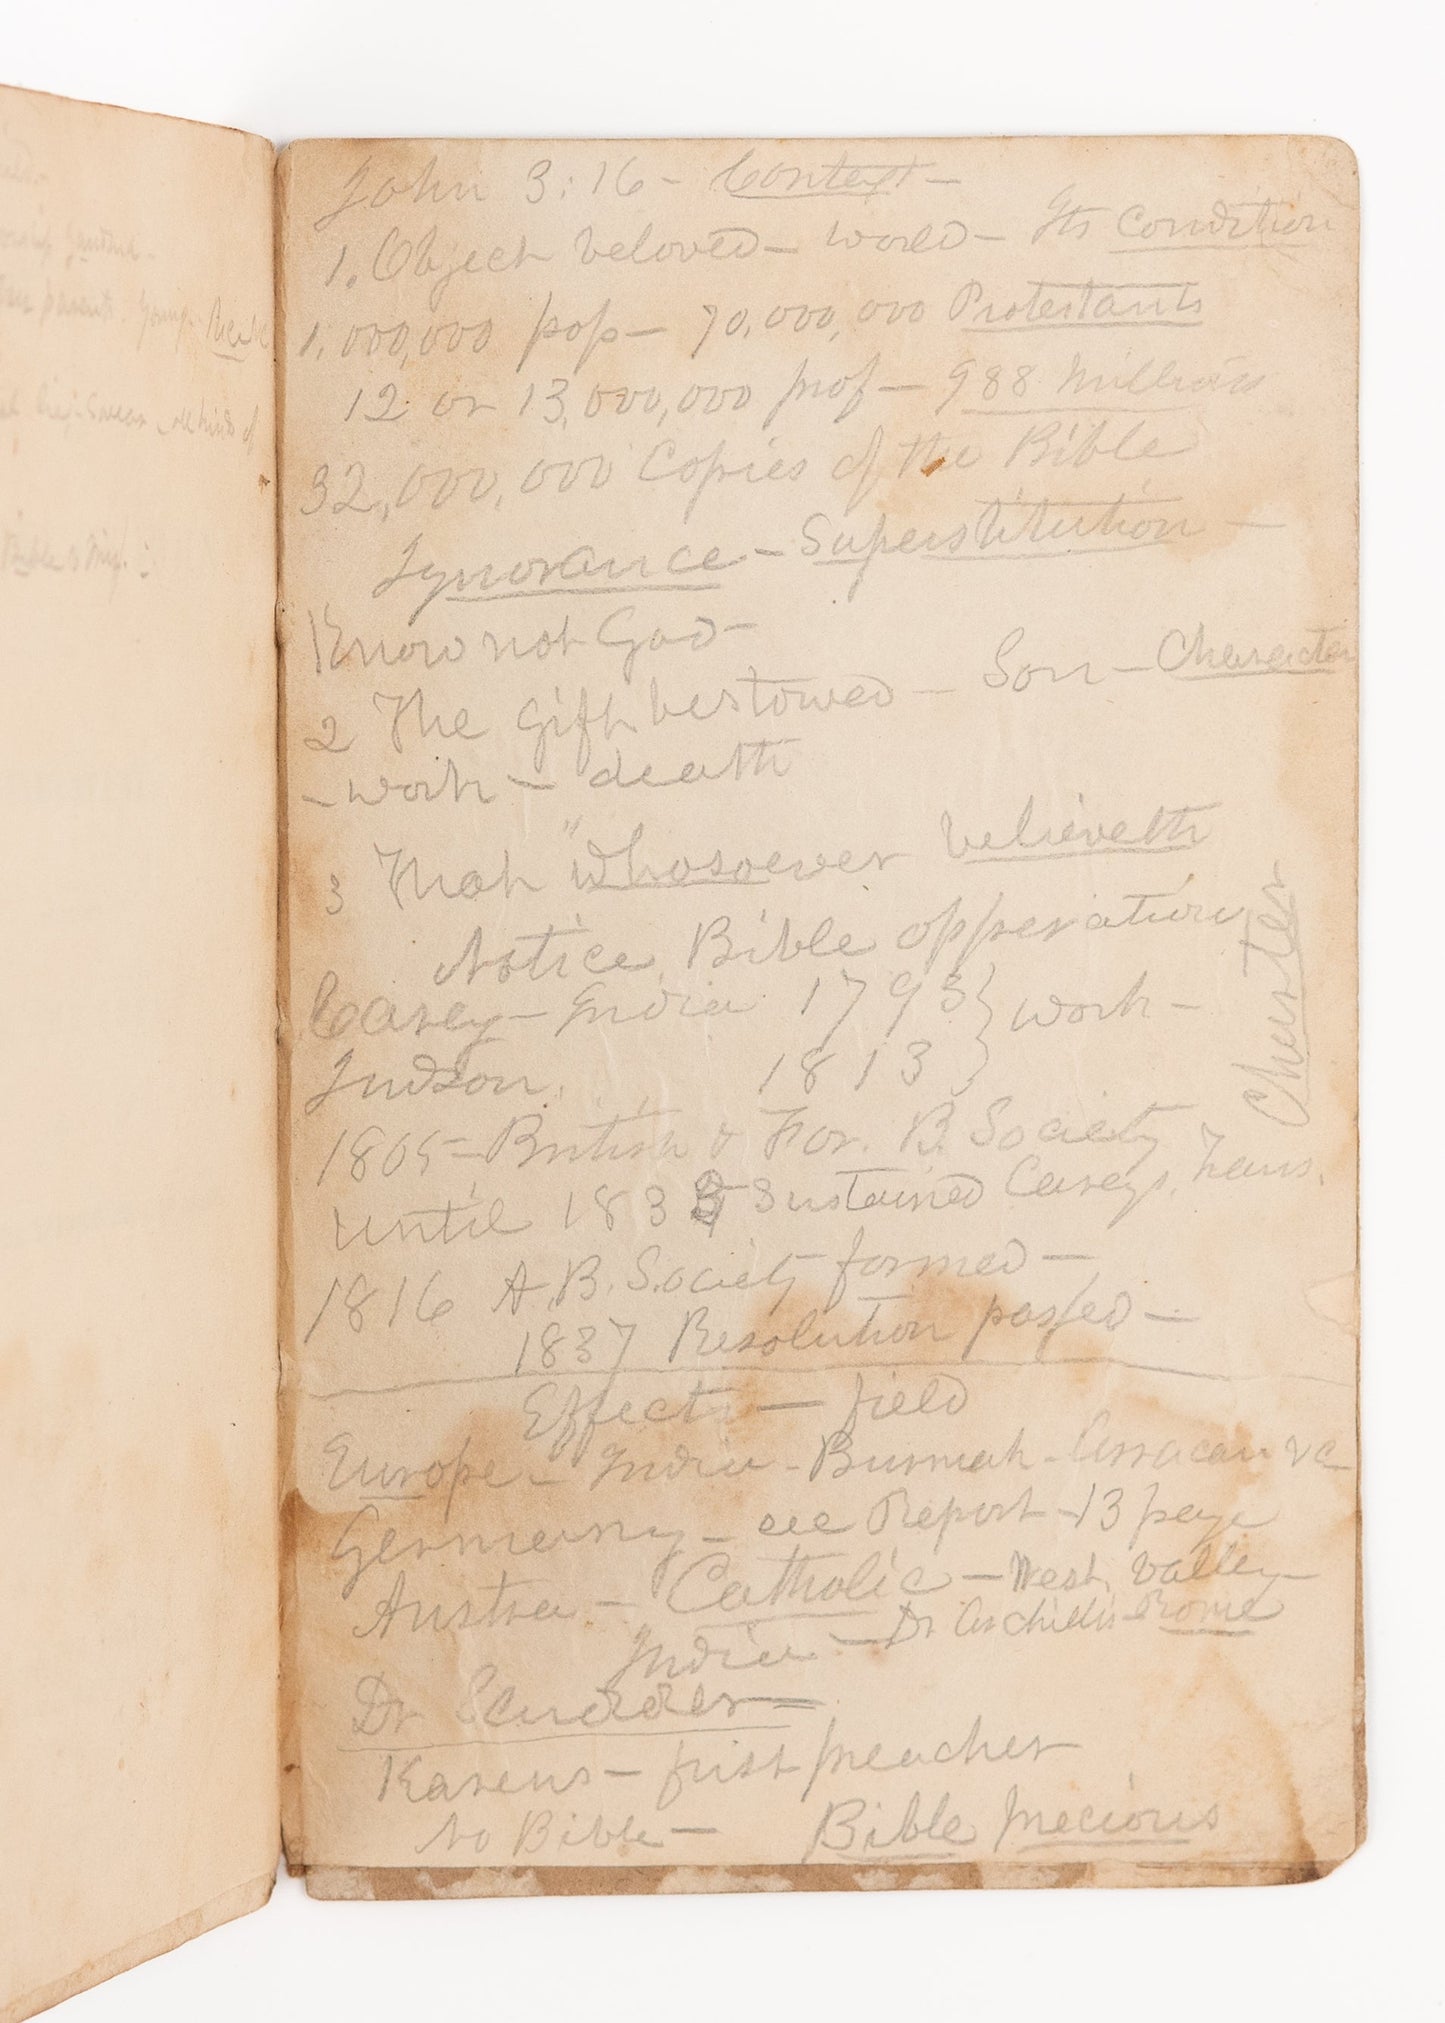 Bible & Miss. -
John 3:16 - Context -
1. Object beloved - world - Its Condition
1,000,000 pop - 70,000,000 Protestants
12 or 13,000,000 prof - 988 Millions
32,000,000 Copies of the Bible
Ignorance - Superstitution -
Know not God -
2 The Gift bestowed - Son - Character
- work - death
3 That "whosoever believeth
Notice Bible opperation
Carey - India 1793 } work -
Judson 1813 }
Chester
1805 - British & For. B. Society
until 1833 Sustained Careys Trans.
1816 A. B. Society formed -
1837 Resolution passed -
Effects - field
Europe - India - Burmah - Arracan &c
Germany - see Report - 13 page
Austra - Catholic - West Valley -
India - Dr Rome
Dr Scudder -
Karens - first preacher
No Bible - Bible precious